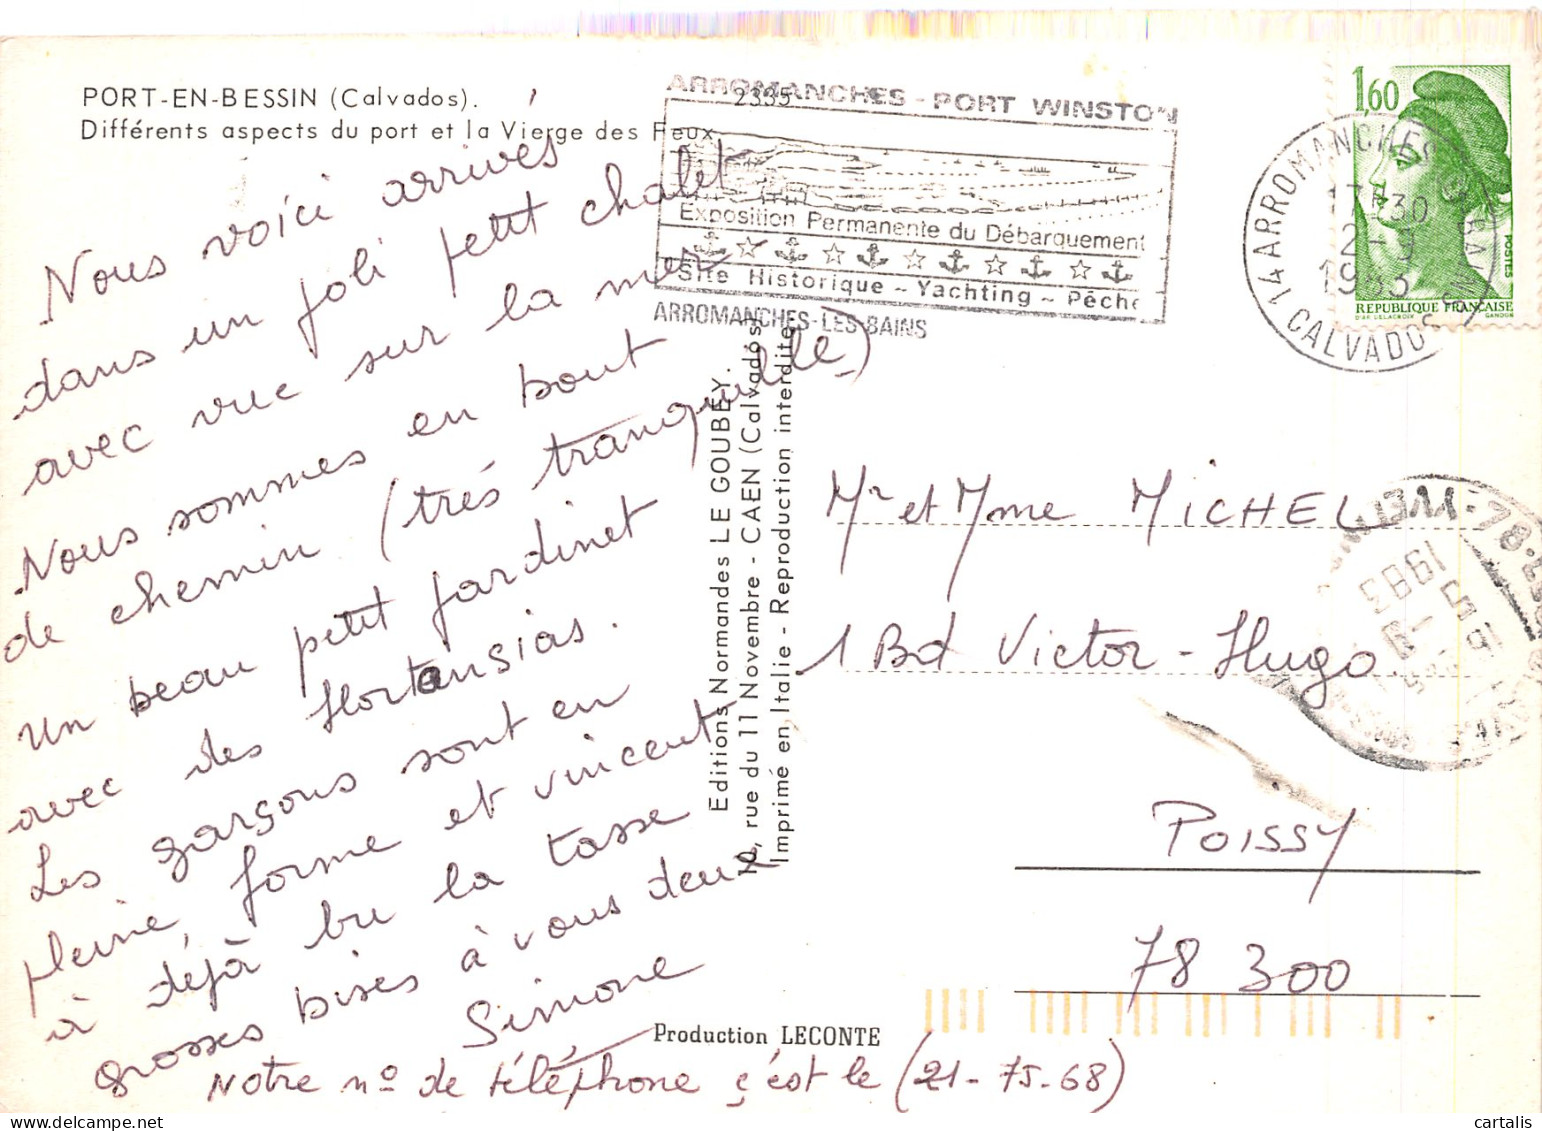 PORT-EN-BESSIN (Calvados).
Différents aspects du port et la Vierge des Feux.
2335
Nous voici arrivés
dans un joli petit chalet
avec vue sur la mer
Nous sommes en bout
de chemin (trés tranquille)
Un beau petit jardinet
avec des Hortensias.
Les garçons sont en
pleine forme et vincent
à déjà bu la tasse
grosses bises à vous deux
Simone
Notre no de téléphone ç'est le (21-75-68)
Editions Normandes LE GOUBEY.
10, rue du 11 Novembre - CAEN (Calvados)
Imprimé en Italie - Reproduction interdite
Production LECONTE
ARROMANCHES - PORT WINSTON
Exposition Permanente du Débarquement
Site Historique - Yachting - Pêche
ARROMANCHES-LES-BAINS
14 ARROMANCHES BAINS
17H30
2-9
1983
CALVADOS
1,60
POSTES
REPUBLIQUE FRANÇAISE
D'AP. DELACROIX GANDON
Mr et Mme MICHEL
1 Bd Victor-Hugo
POISSY
78 300
1983
cartalis www.delcampe.net